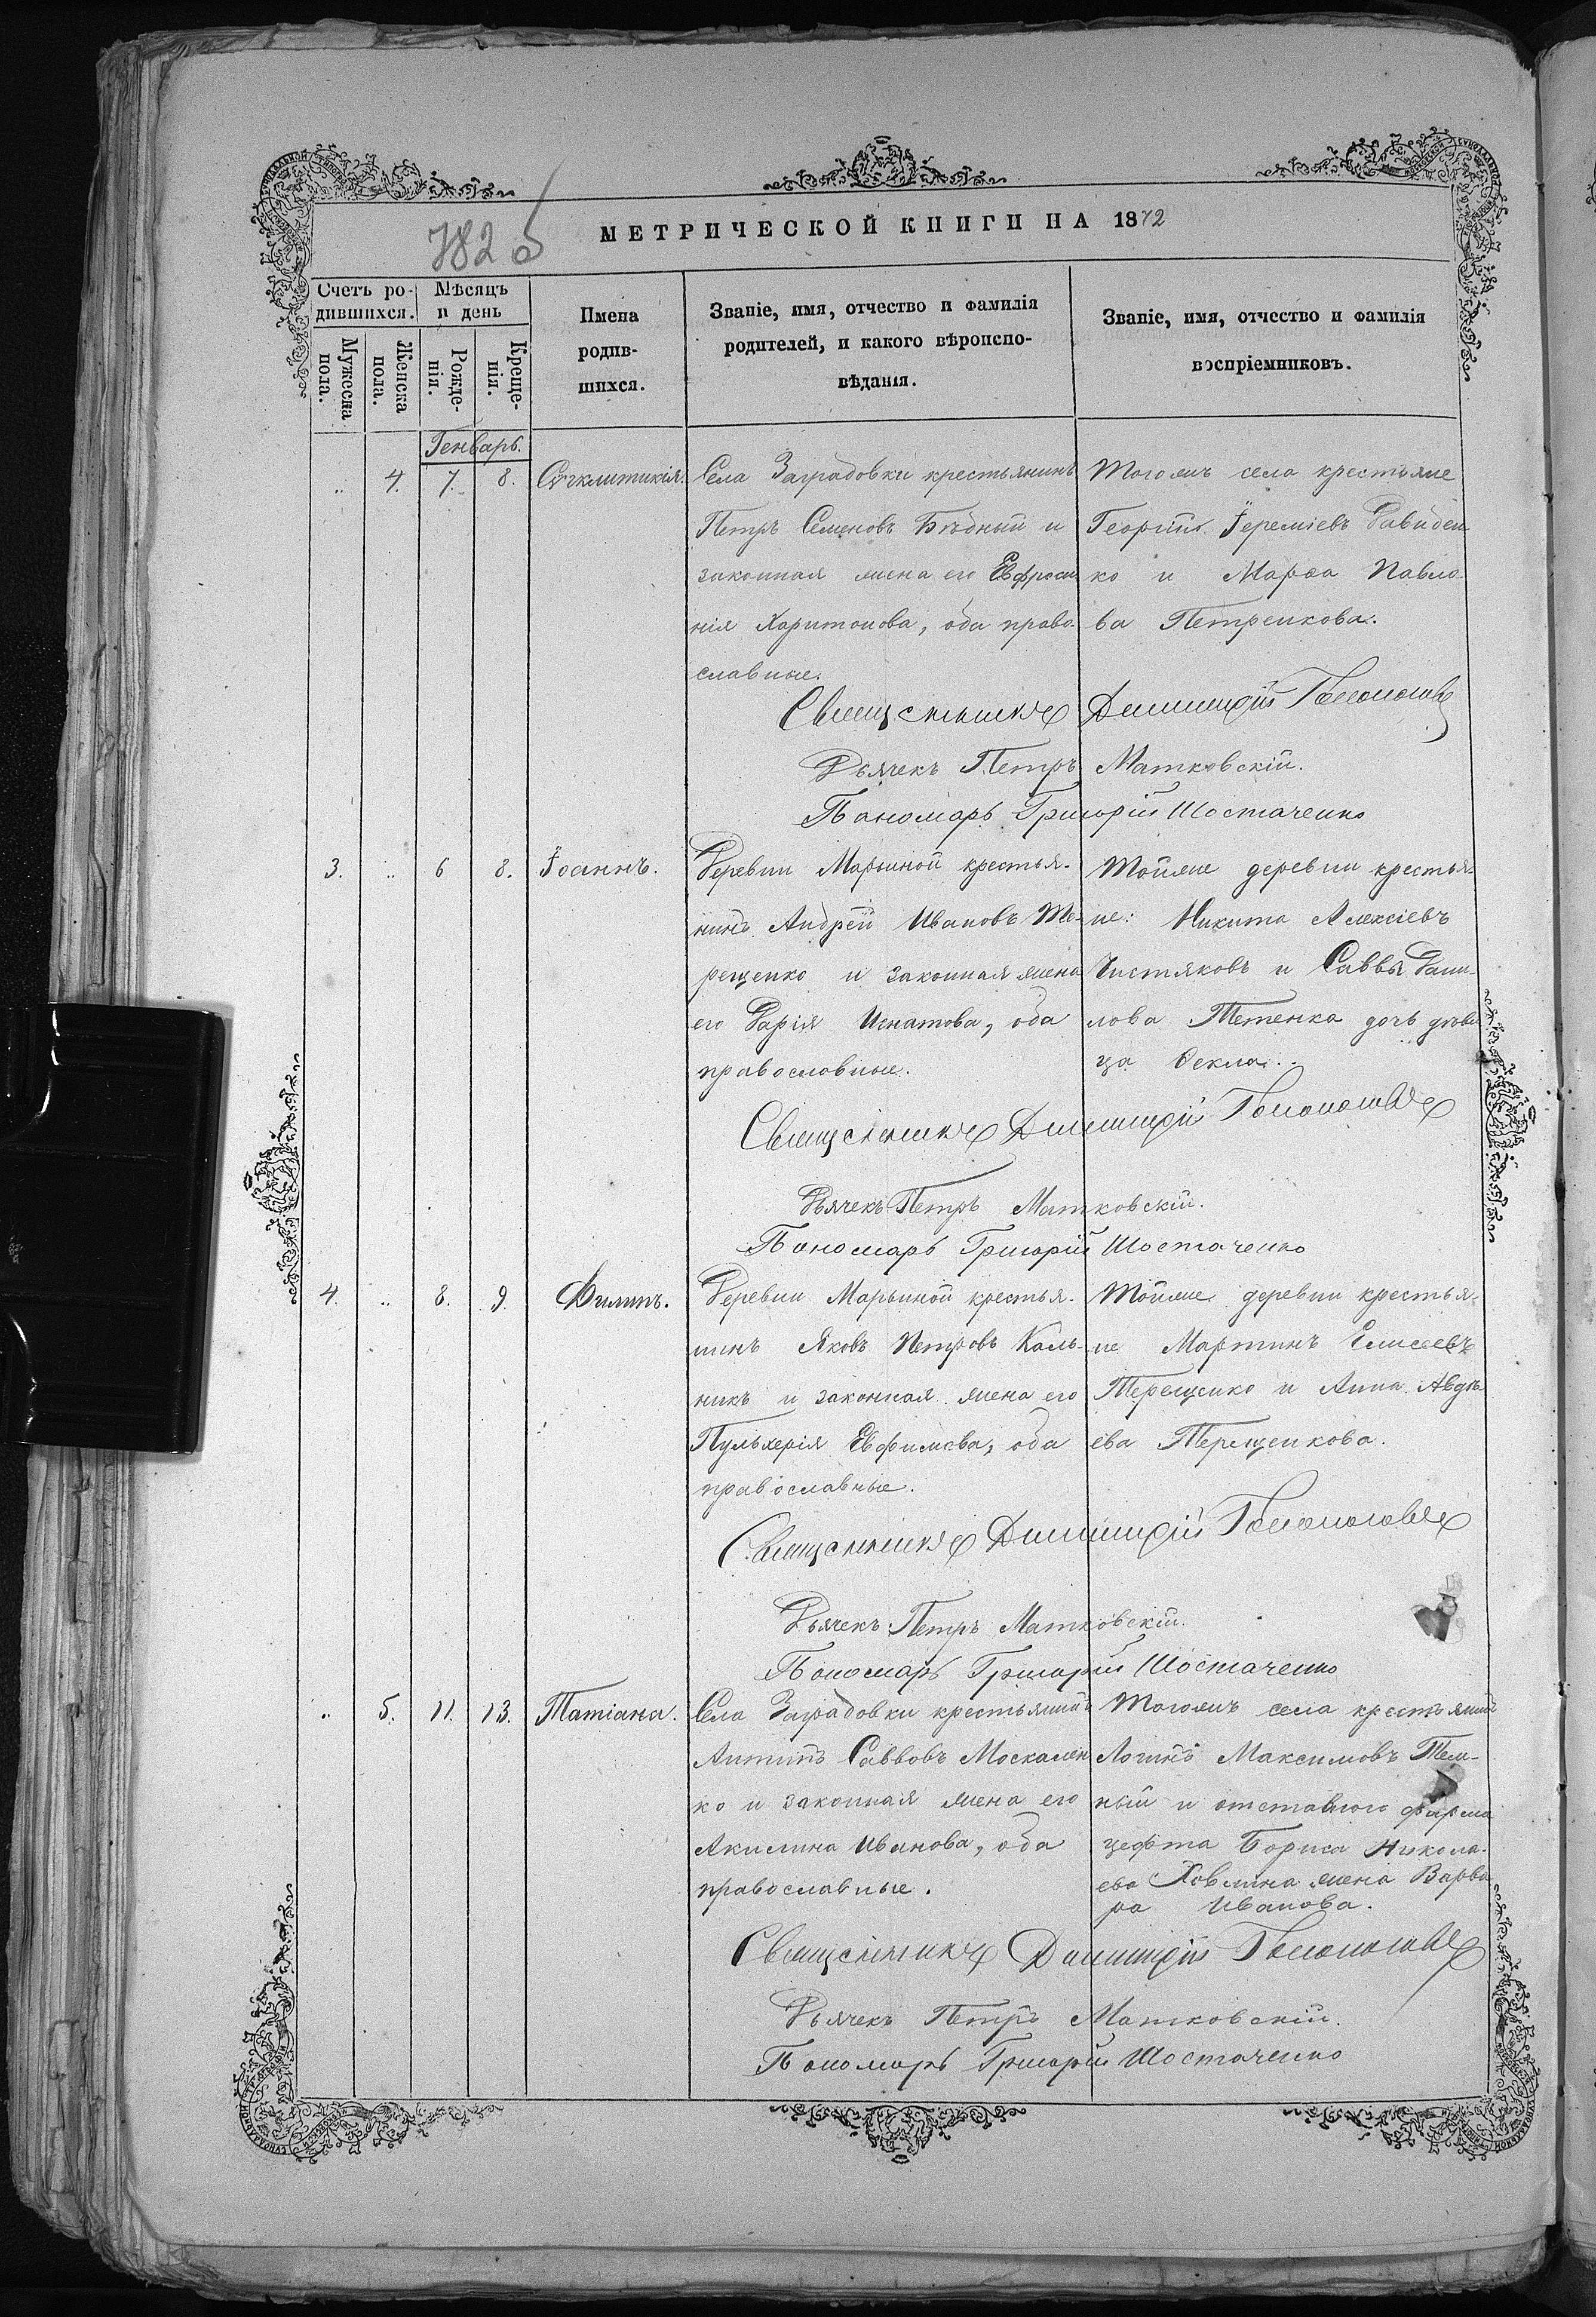 782 б
МЕТРИЧЕСКОЙ КНИГИ НА 1872
Счетъ ро-
дившихся.
Мѣсяцъ
и день
Мужеска
пола.
Женска
пола.
Рожде-
нія.
Креще-
нія.
Имена
родив-
шихся.
Званіе, имя, отчество и фамилія
родителей, и какого вѣроиспо-
вѣданія.
Званіе, имя, отчество и фамилія
воспріемниковъ.
Генварь.
„ 4. 7. 8. Сѵнклитикія.
Села Заградовки крестьянинъ
Петръ Семеновъ Бѣдный и
законная жена его Евфроси
нія Харитонова, оба право-
славные.
Тогожъ села крестьяне
Георгій Іереміевъ Давиден
ко и Марѳа Павло
ва Петренкова.
Священникъ Димитрій
Дьячекъ Петръ Матковскій.
Пономарь Григорій Шостаченко
3. „ 6 8. Іоаннъ.
Деревни Марьиной крестья-
нинъ Андрей Ивановъ Те-
рещенко и законная жена
его Дарія Игнатова, оба
православные.
Тойже деревни крестья-
не: Никита Алексіевъ
Чистяковъ и Саввы Дани-
лова Тетенка дочь дѣви
ца Ѳекла.
Священникъ Димитрій
Дьячекъ Петръ Матковскій.
Пономарь Григорій Шостаченко
4. „ 8. 9. Филипъ.
Деревни Марьиной крестья-
нинъ Яковъ Петровъ Каль-
никъ и законная жена его
Пульхерія Евфимова, оба
православные.
Тойже деревни крестья-
не Мартинъ Елисеевъ
Терещенко и Анна Авдѣ
ева Терещенкова.
Священникъ Димитрій
Дьячекъ Петръ Матковскій.
Пономарь Григорій Шостаченко
„ 5. 11. 13. Татіана.
Села Заградовки крестьянинъ
Антипъ Саввовъ Москален
ко и законная жена его
Акилина Иванова, оба
православные.
Тогожъ села крестьянинъ
Логинъ Максимовъ Тем-
ный и отставного фарма
цефта Бориса Никола-
ева жена Варва
ра Иванова.
Священникъ Димитрій
Дьячекъ Петръ Матковскій.
Пономарь Григорій Шостаченко